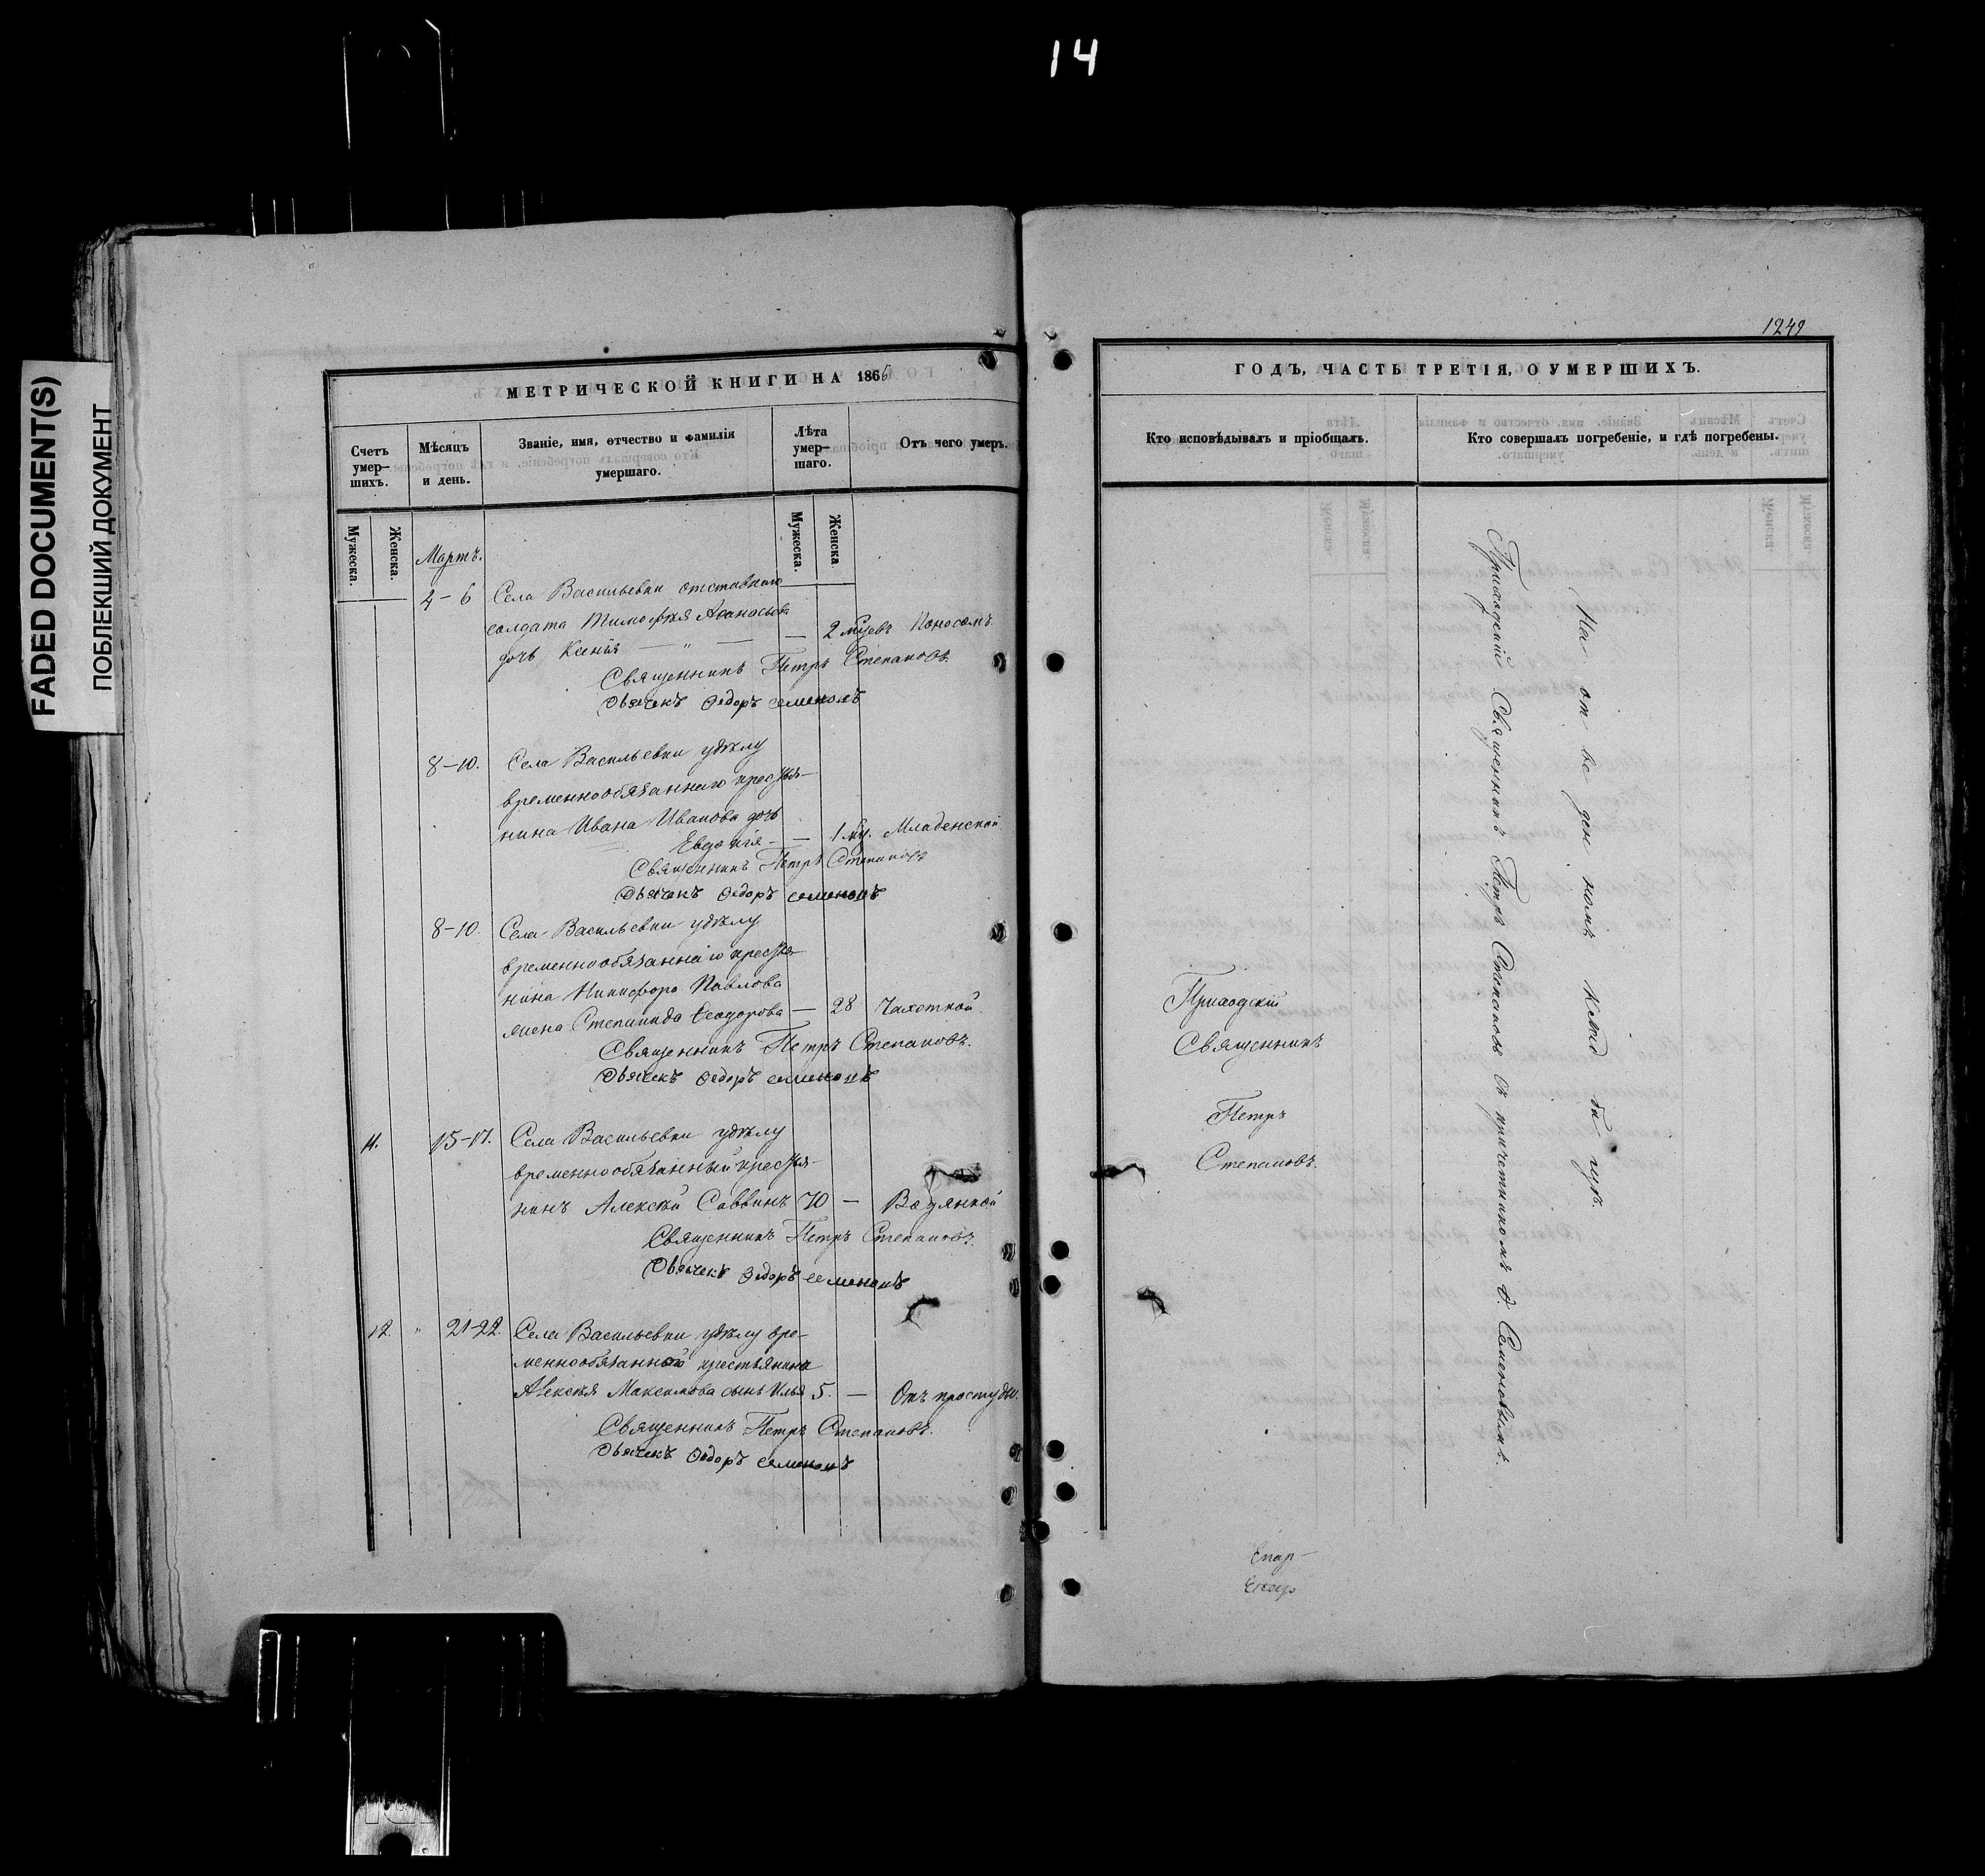 14
FADED DOCUMENT(S)
ПОБЛЕКШИЙ ДОКУМЕНТ
МЕТРИЧЕСКОЙ КНИГИ НА 1865
Счетъ умер-шихъ.
Мѣсяцъ и день.
Званіе, имя, отчество и фамилія умершаго.
Лѣта умер-шаго.
Отъ чего умеръ.
Мужеска.
Женска.
Мужеска.
Женска
Мартъ.
4-6 Села Васильевки отставнаго
солдата Тимофѣя Аѳанасьева
дочь Ксенія — „ — — 2 мцевъ Поносомъ.
Священникъ Петръ Степановъ.
Дьячекъ Ѳедоръ Семеновъ
8-10. Села Васильевки удѣлу
временнообязаннаго крестья-
нина Ивана Иванова дочь
Евдокія — — 1 мц. Младенской
Священникъ Петръ Степановъ
Дьячекъ Ѳедоръ Семеновъ
8-10. Села Васильевки удѣлу
временнообязаннаго крестья-
нина Никифора Павлова
жена Степанида Ѳеодорова — 28 Чахоткой.
Священникъ Петръ Степановъ.
Дьячекъ Ѳедоръ Семеновъ
11. 15-17. Села Васильевки удѣлу
временнообязанный крестья-
нинъ Алексѣй Саввинъ 70 — Водянкой
Священникъ Петръ Степановъ.
Дьячекъ Ѳедоръ Семеновъ
12. „ 21-22. Села Васильевки удѣлу вре-
меннообязаннаго крестьянина
Алексѣя Максимова сынъ Илья 5. — Отъ простуды.
Священникъ Петръ Степановъ.
Дьячекъ Ѳедоръ Семеновъ
1249
ГОДЪ, ЧАСТЬ ТРЕТІЯ, О УМЕРШИХЪ.
Кто исповѣдывалъ и пріобщалъ.
Кто совершалъ погребеніе, и гдѣ погребены.
Приходскій
Священникъ
Петръ
Степановъ.
Приходскій Священникъ Петръ Степановъ съ причетникомъ Ѳ. Семеновымъ.
На отведенномъ
Епар-